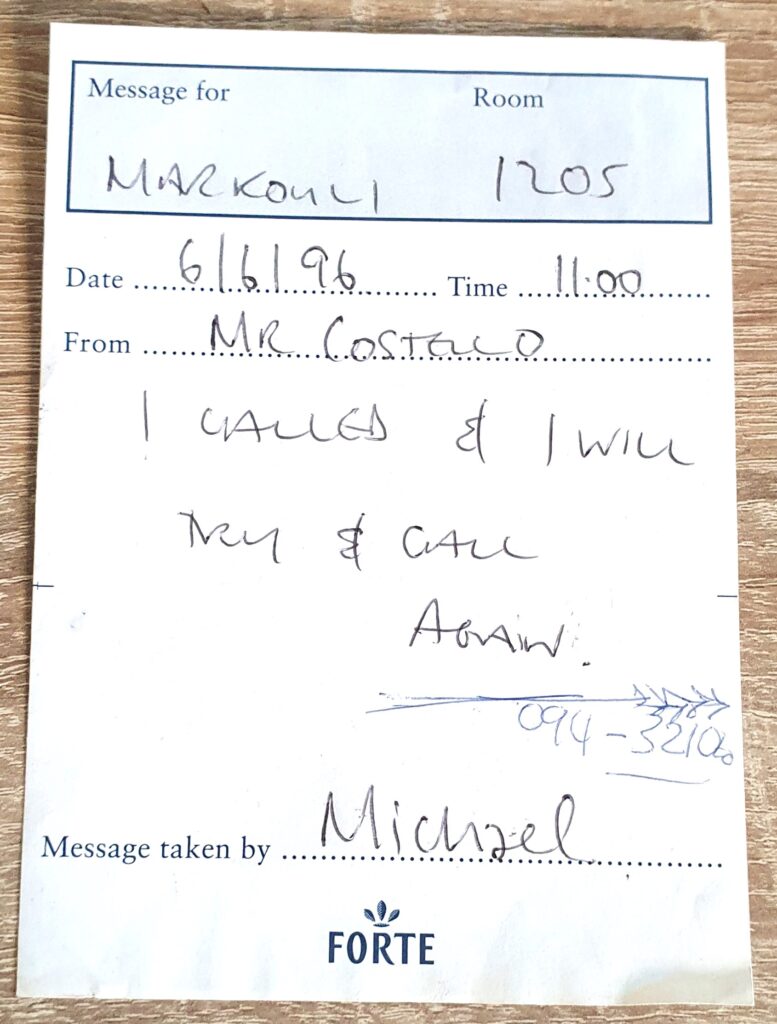 Message for Room
MARKOULI 1205
Date 6/6/96 Time 11:00
From MR COSTELLO
I CALLED & I WILL
TRY & CALL
AGAIN.
094-3210
Message taken by Michael
FORTE